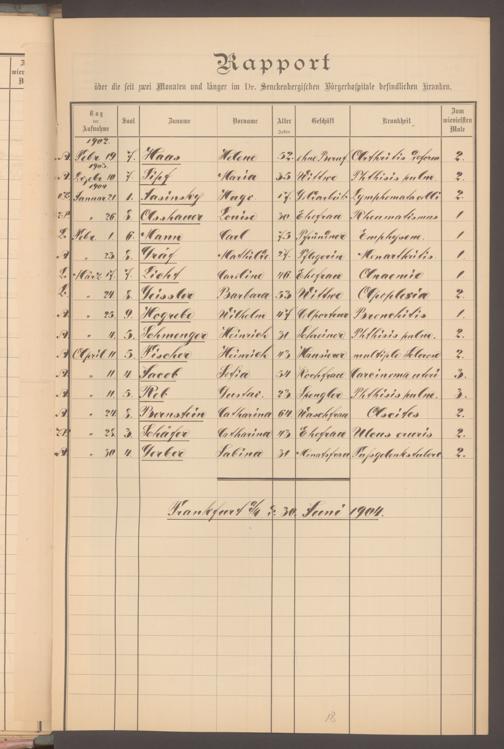 Rapport
über die seit zwei Monaten und länger im Dr. Senckenbergischen Bürgerhospitale befindlichen Kranken.
Tag der Aufnahme Saal Zuname Vorname Alter Jahre Geschäft Krankheit Zum wievielsten Male
1902.
A. Febr. 19 7. Haas Helene 52. ohne Beruf Arthritis deform 2.
1903.
A. Dezbr. 10 7. Pipf Maria 35 Wittwe Phthisis pulm. 2.
1904
Januar 21 1. Sasinsky Hugo 17. Lymphomata colli 2.
" 26 8 Elsshauer Louise 30 Ehefrau Rheumatismus 1
L. Febr. 1 6. Mann Carl 73 Pfründner Emphysem. 1
A. " 23 8 Gräf Mathilde 27. Pflegerin Monarthritis. 1.
L. März 17. 7. Licht Caroline 46 Ehefrau Anaemie 1.
L. " 24 8 Geissler Barbara 53 Wittwe Apoplexia 2.
A. " 25 9 Hogrebe Wilhelm 47 Colporteur Bronchitis 1.
A. " 4. 3. Schmenger Heinrich 31 Schreiner Phthisis pulm. 2.
A April 11 3. Fischer Heinrich 43 Hausierer multiple Sclerose 2.
A. " 11 4 Jacob Sofia 54 Kochfrau Carcinoma uteri 3.
A. " 11 5. Rob Gustav. 23 Spengler Phthisis pulm. 3.
A. " 24 8 Bernstein Catharina 64 Waschfrau Ascites 2.
" 28 3. Schäfer Catharina 43 Ehefrau Ulcus cruris 2.
A. " 30 4. Gerber Sabina 31 Monatsfrau 2.
Frankfurt a/M d. 30. Juni 1904.